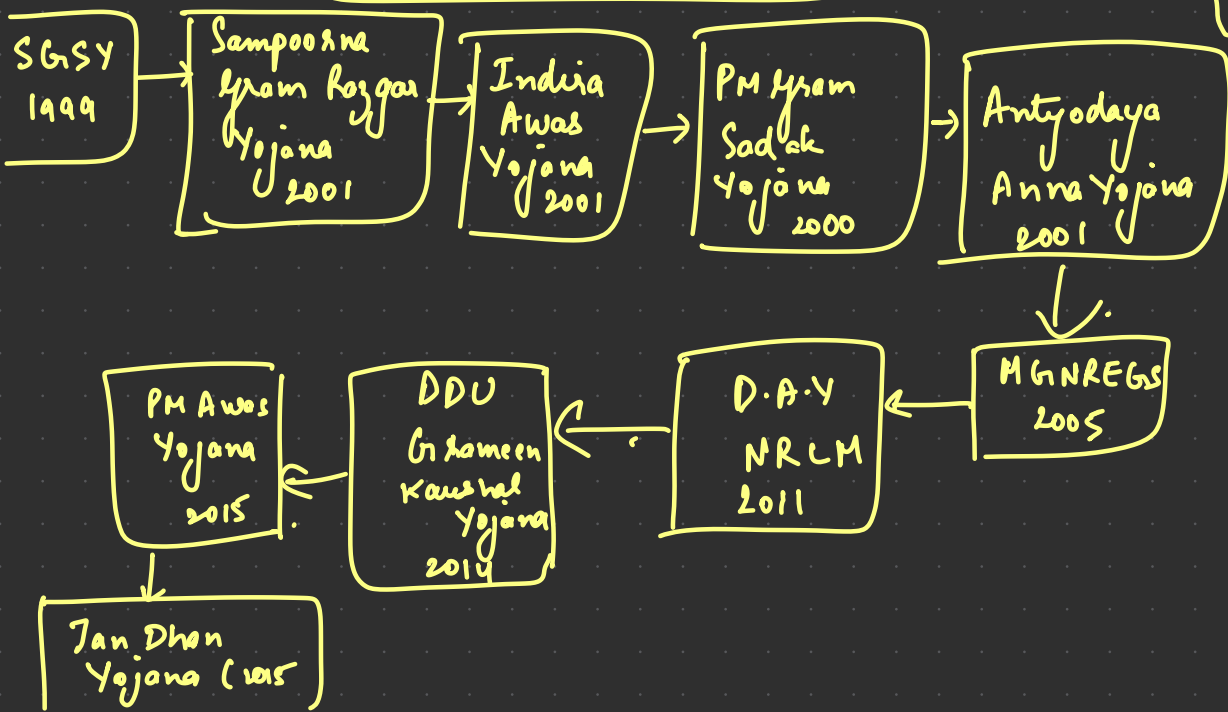 SGSY
1999
Sampoorna
Gram Rozgar
Yojana
2001
Indira
Awas
Yojana
2001
PM Gram
Sadak
Yojana
2000
Antyodaya
Anna Yojana
2001
MGNREGS
2005
D.A.Y
NRLM
2011
DDU
Grameen
Kaushal
Yojana
2014
PM Awas
Yojana
2015
Jan Dhan
Yojana (2015